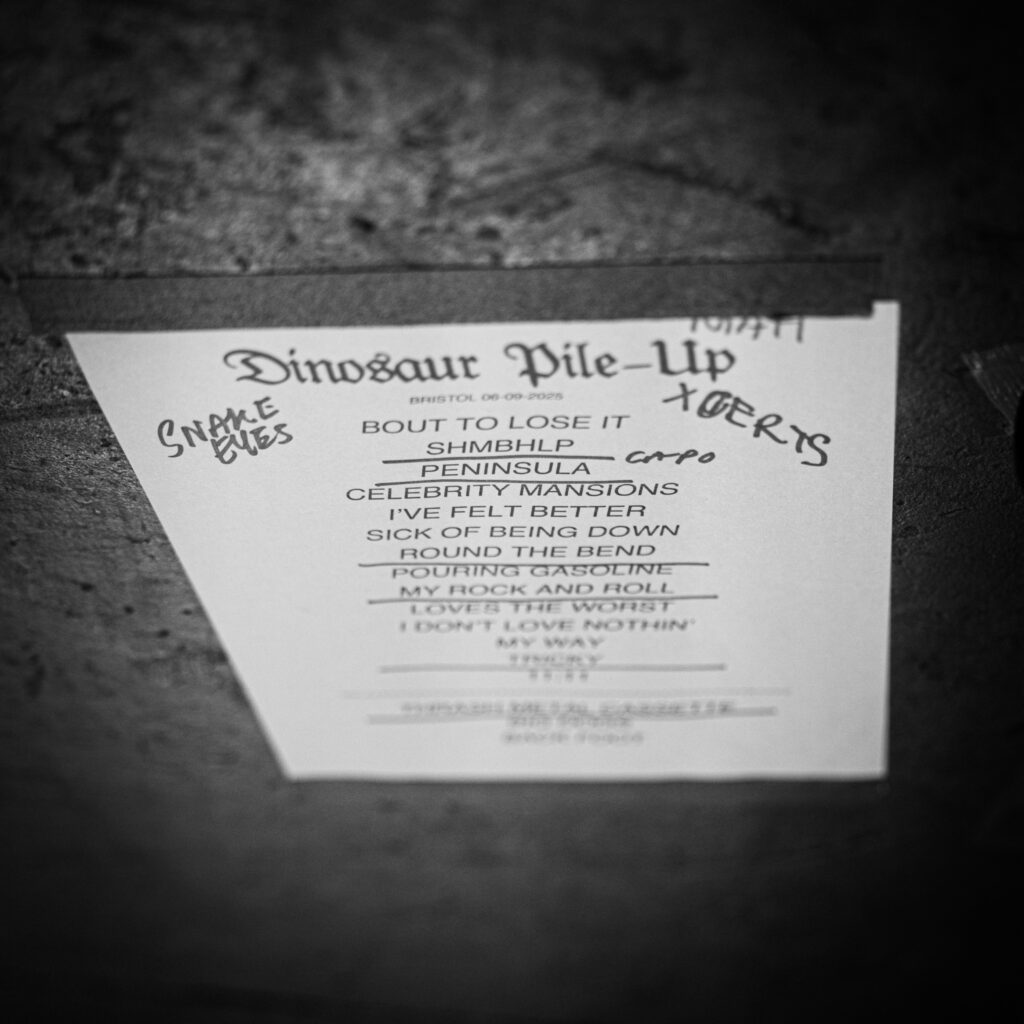 Dinosaur Pile-Up
BRISTOL 06-09-2025
SNAKE
EYES
XCERTS
BOUT TO LOSE IT
SHMBHLP
CAPO
PENINSULA
CELEBRITY MANSIONS
I'VE FELT BETTER
SICK OF BEING DOWN
ROUND THE BEND
POURING GASOLINE
MY ROCK AND ROLL
LOVES THE WORST
I DON'T LOVE NOTHIN'
MY WAY
11:11